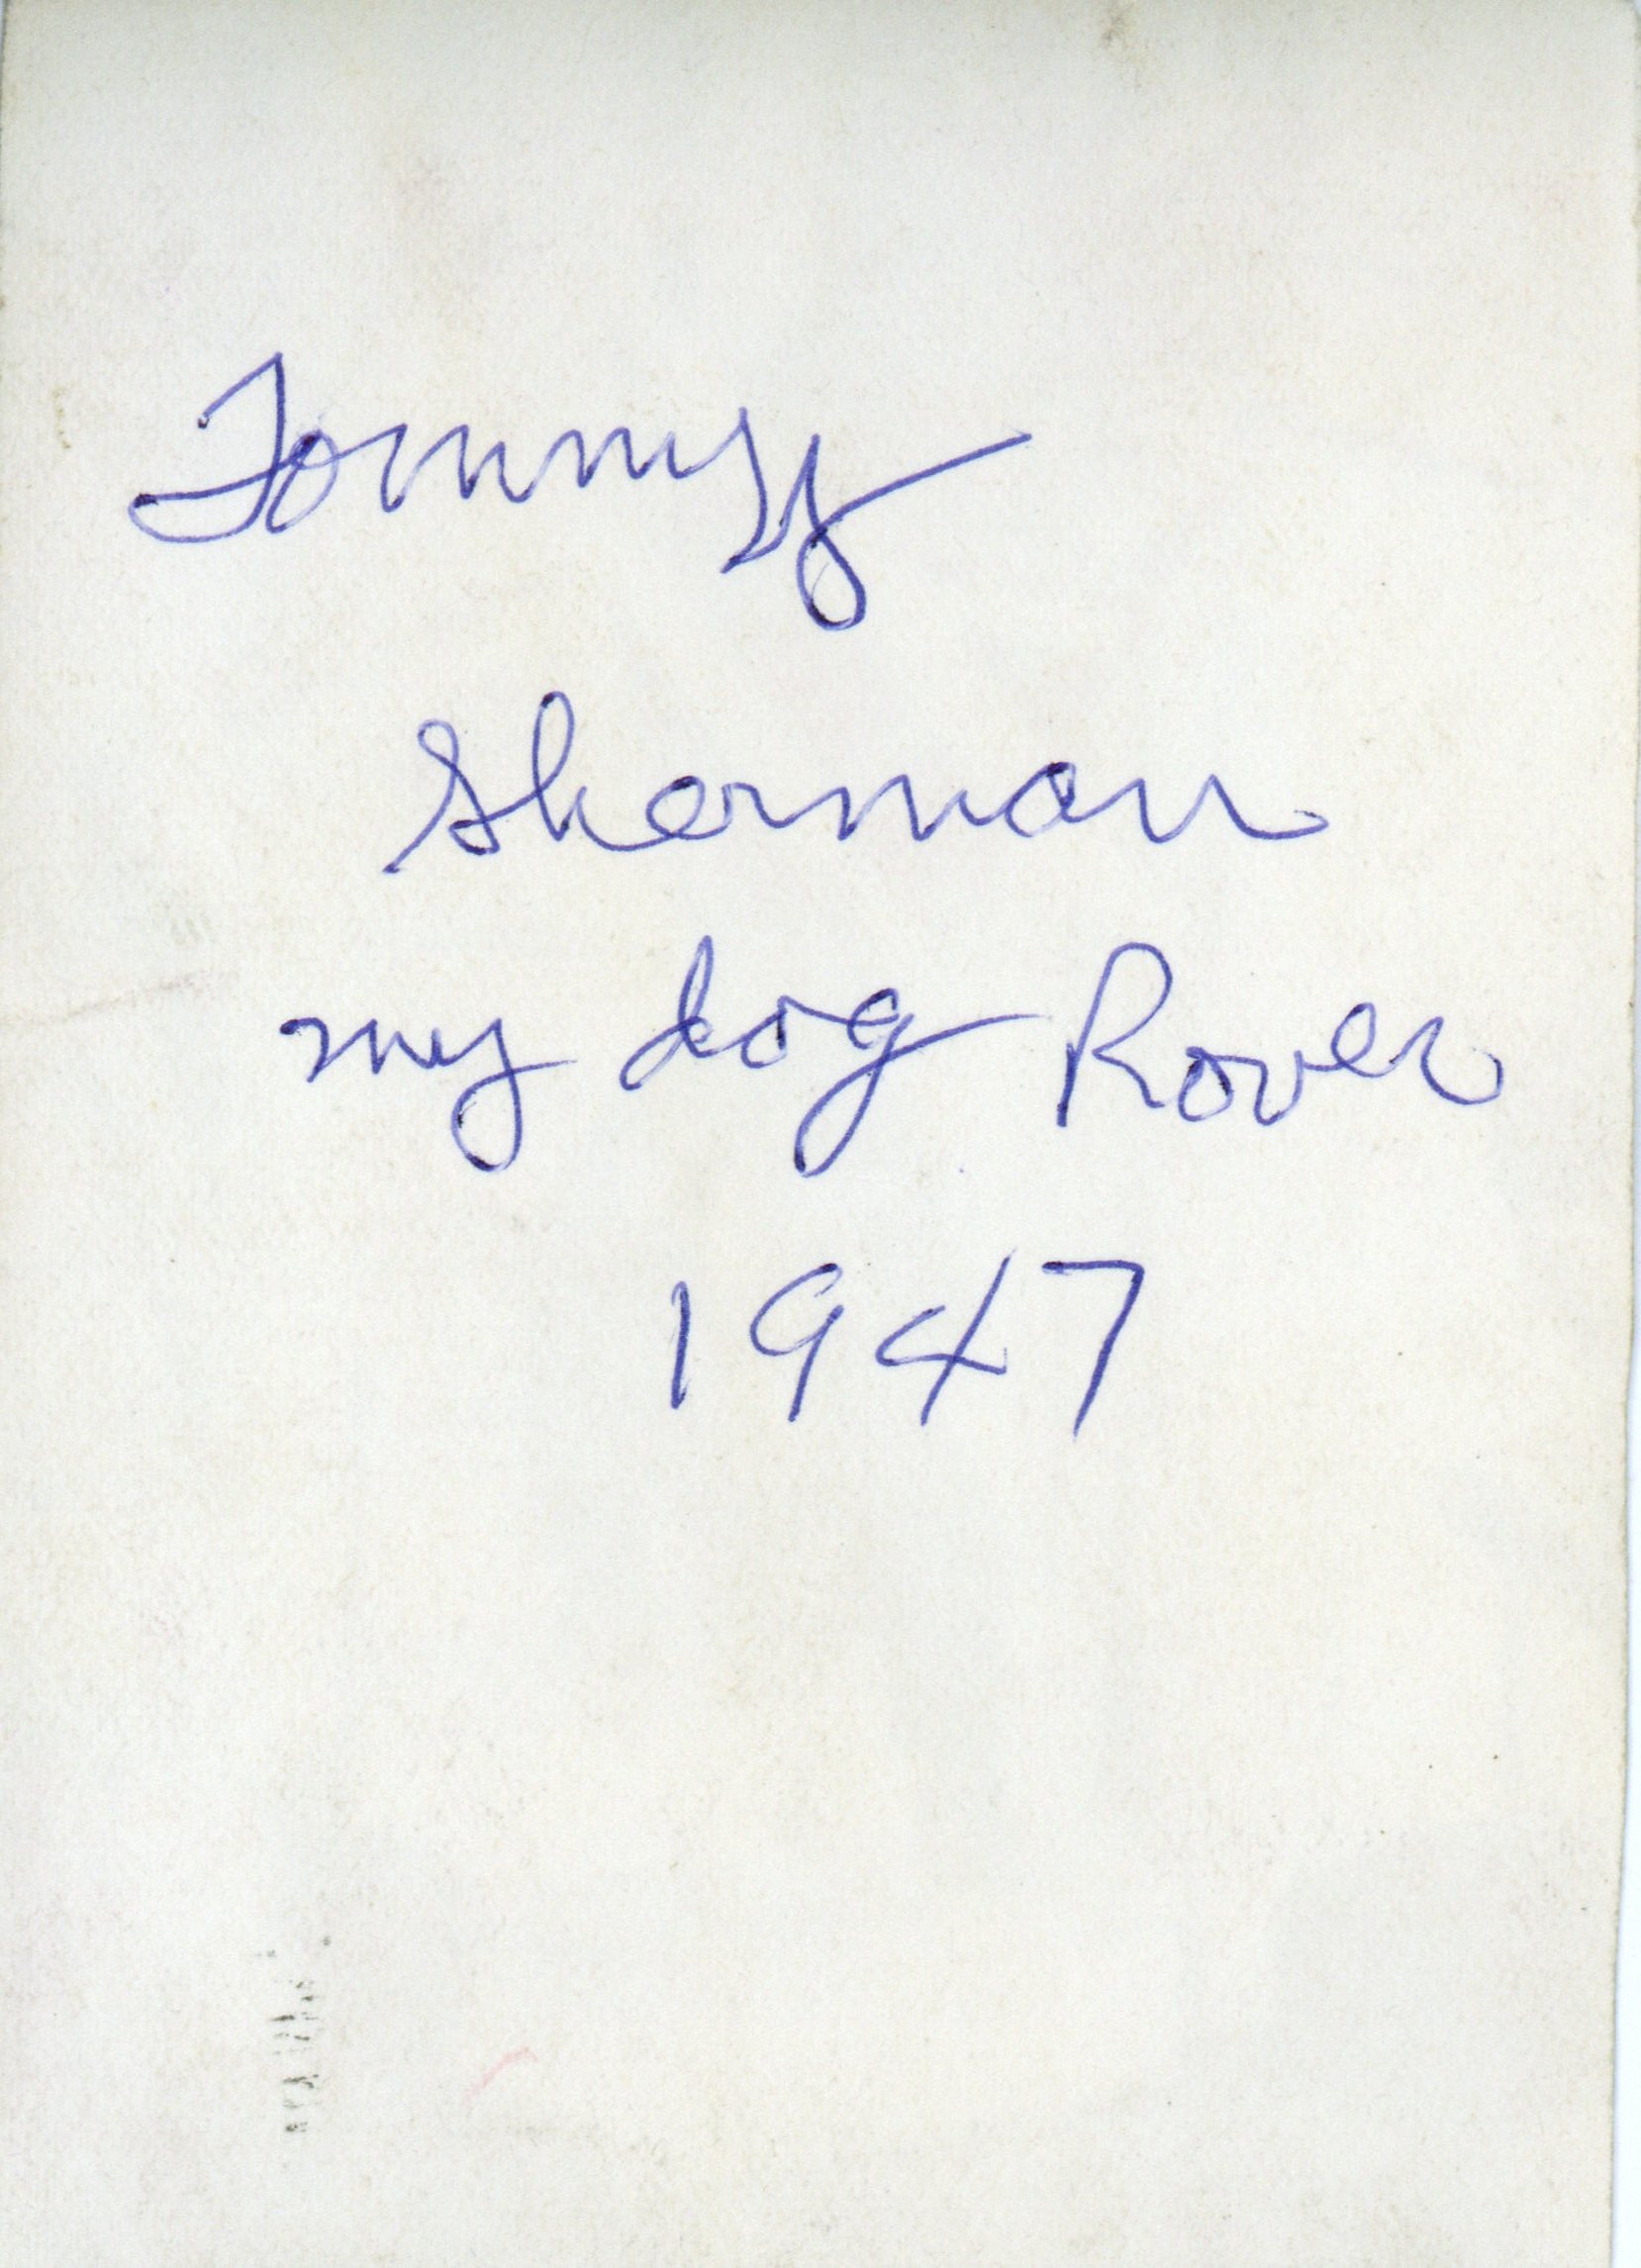 Tommy
Sherman
my dog Rover
1947